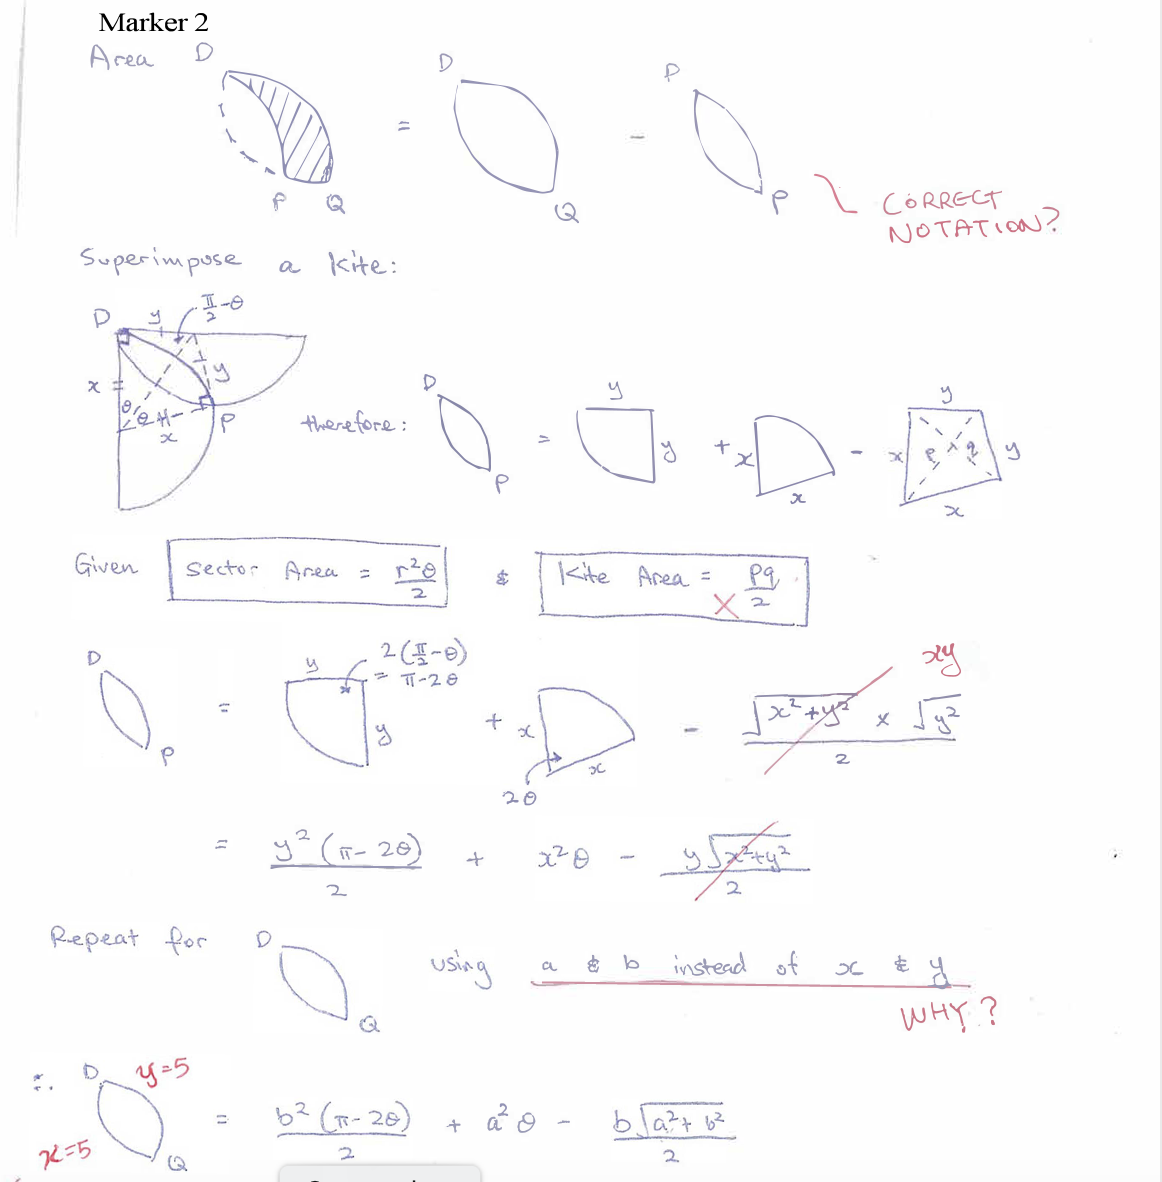 Marker 2
Area D = D - P
P Q Q P
CORRECT
NOTATION?
Superimpose a kite:
D y π/2-θ
x y
θ θ x P
therefore: D P = y y + x x - x y y x p q
Given Sector Area = r²θ/2 & Kite Area = pq/2 X
xy
D P = y y 2(π/2-θ) = π-2θ + x x 2θ - √x²+y² x √y² / 2
= y²(π-2θ)/2 + x²θ - y√x²+y²/2
Repeat for D Q using a & b instead of x & y
WHY?
∴ D Q y=5 x=5 = b²(π-2θ)/2 + a²θ - b√a²+b²/2